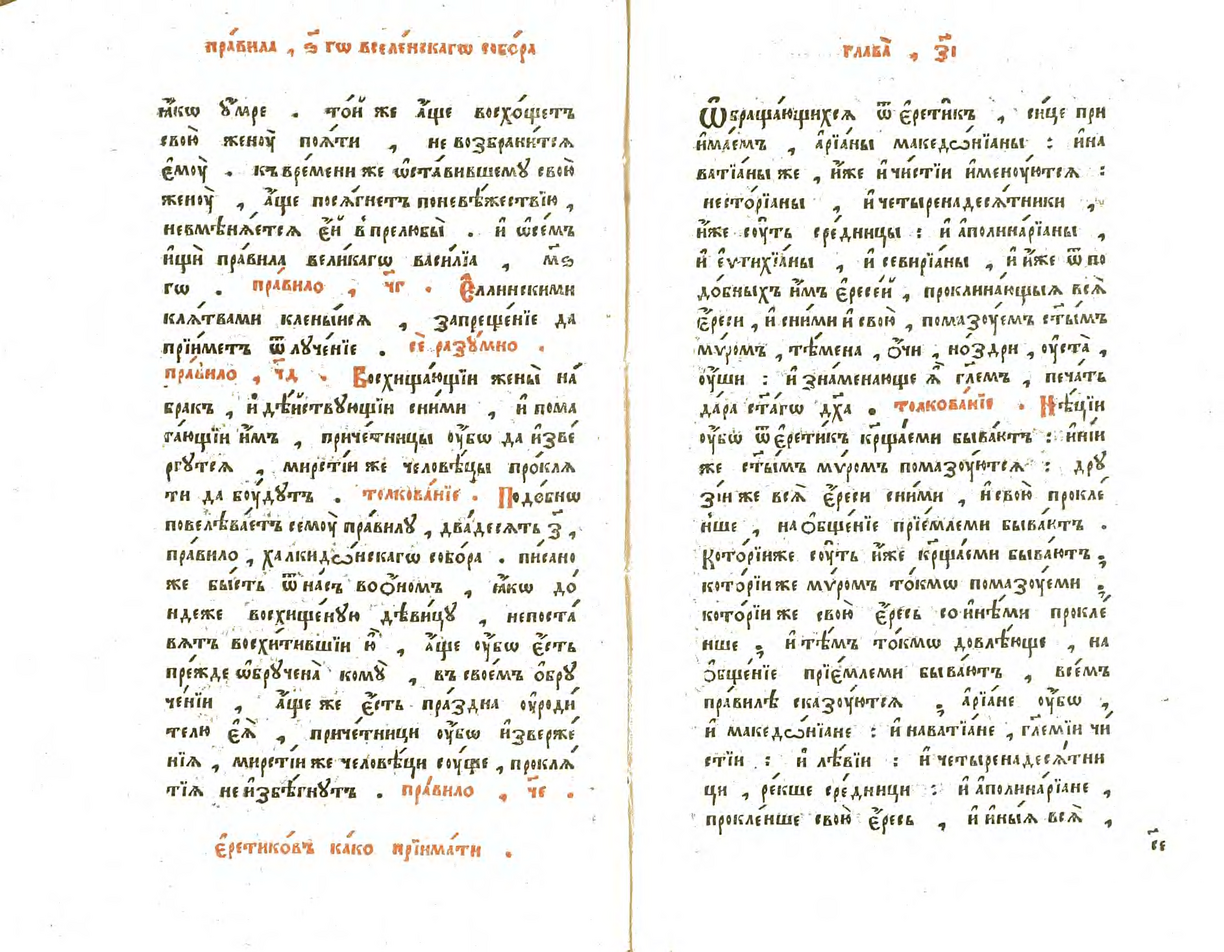 пра́вила , ѕ҃ гѡ вселе́нскагѡ собо́ра
ꙗ҆́кѡ ᲂу҆́мре . то́й же а҆́ще восхо́щетъ
свою̀ женꙋ̀ поѧ́ти , не возбрани́тсѧ
є҆мꙋ̀ . къ вре́мени же ѡ҆ста́вившемꙋ свою̀
женꙋ̀ , а҆́ще посѧ́гнетъ поневѣ́жествїю ,
невмѣнѧ́етсѧ є҆́й в прелюбы̀ . и҆ ѡ҆се́мъ
и҆щѝ пра́вила вели́кагѡ васи́лїа , м҃ѕ
гѡ . пра́вило , ч҃г . Є҆́ллинскими
клѧ́твами клены́исѧ , запреще́нїе да
прїи́метъ ѿлꙋче́нїе . сѐ разꙋ́мно .
пра́вило , ч҃д . Восхища́ющїи жены̀ на́
бракъ , и҆ дѣ́йствꙋющїи сни́ми , и҆ пома
га́ющїи и҆̀мъ , приче́тницы ᲂу҆́бѡ да и҆зве́
ргꙋтсѧ , мирсті́и же человѣ́цы про́клѧ
ти да бꙋ́дꙋтъ . толкова́нїе . Подо́бнѡ
повелѣва́етъ семꙋ̀ пра́вилꙋ , два́десѧть з҃ ,
пра́вило , халкидѡ́нскагѡ собо́ра . пи́сано
же бы́сть ѿ на́съ во ѻ҆́номъ , ꙗ҆́кѡ до́
ндеже восхище́нꙋю дѣви́цꙋ , непоста́
вѧтъ восхи́тившїи ю҆̀ , а҆́ще ᲂу҆́бѡ є҆́сть
пре́жде ѡ҆брꙋчена̀ комꙋ̀ , въ свое́мъ ѻ҆брꙋ
че́нїи , а҆́ще же є҆́сть пра́здна ᲂу҆роди́
телю є҆ѧ̀ , приче́тници ᲂу҆́бѡ и҆зверже́
нїѧ , мирсті́и же человѣ́ци сꙋ́ще , проклѧ́
тїѧ не и҆збѣ́гнꙋтъ . пра́вило , ч҃е .
є҆ретико́въ ка́ко прїима́ти .
глава̀ , з҃і
Ѿбраща́ющихсѧ ѿ є҆рети́къ , си́це при
и҆ма́емъ , а҆рїа́ны македѡнїа́ны : и҆ на
ватїа́ны же , и҆̀же и҆ чи́стїи и҆менꙋ́ютсѧ :
несторїа́ны , и҆ четыренадесѧ́тники ,
и҆̀же сꙋ́ть сре́дницы : и҆ а҆полина́рїаны ,
и҆ є҆ѵтихїа́ны , и҆ севирїа́ны , и҆ и҆̀же ѿ по
до́бныхъ и҆̀мъ є҆ресе́й , проклина́ющыѧ всѧ̀
є҆́реси , и҆ сни́ми и҆ свою̀ , помазꙋ́емъ ст҃ы́мъ
мѵ́ромъ , тѣ́мена , ѻ҆́чи , но́здри , ᲂу҆ста̀ ,
ᲂу҆́ши : и҆ зна́менающе ѧ҆̀ гл҃емъ , печа́ть
да́ра ст҃а́гѡ дх҃а . толкова́нїе . Нѣ́цїи
ᲂу҆́бѡ ѿ є҆рети́къ кр҃ща́еми быва́ютъ : и҆ні́и
же ст҃ы́мъ мѵ́ромъ помазꙋ́ютсѧ : дрꙋ
зі́и же всѧ̀ є҆́реси сни́ми , и҆ свою̀ прокле́
нше , на ѻ҆бще́нїе прїе́млеми быва́ютъ .
Кото́рїиже сꙋ́ть и҆̀же кр҃ща́еми быва́ютъ ;
кото́рїи же мѵ́ромъ то́кмѡ помазꙋ́еми ;
кото́рїи же свою̀ є҆́ресь со и҆нѣ́ми прокле́
нше ; и҆ тѣ́мъ то́кмѡ довлѣ́юще , на
ѻ҆бще́нїе прїе́млеми быва́ютъ , все́мъ
пра́вилѣ сказꙋ́ютсѧ ; а҆рїа́не ᲂу҆́бѡ ,
и҆ македѡ́нїане : и҆ наватїа́не , гл҃емїи чи́
стїи : и҆ лѣ́вїи : и҆ четыренадесѧ́тни
ци , ре́кше сре́дницы : и҆ а҆полина́рїане ,
прокле́нше свою̀ є҆́ресь , и҆ и҆ны́ѧ всѧ̀ ,
с҃е